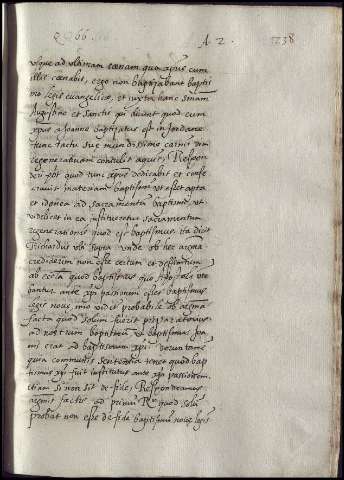 Q. 66. A 2. 238
vsque ad vltimam coenam qua xpus cum
illis coenabit, ergo non baptizabant baptis
mo legis euangelicæ, et iuxta hanc sniam
Augustino et sanctis qui dicunt quod cum
xpus a Joanne baptizatus est in Jordane
tunc tactu suæ mundissimæ carnis vim
regeneratiuam contulit aquis, Respon
detur quod tunc xpus dedicabit et conse
crauit materiam baptismi vt esset apta
et idonea ad sacramentum baptismi, vt
videlicet in ea institueretur sacramentum
regenerationis quod est baptismus. ita dicit
Richardus vbi supra vnde ob hec argta
crediderim non esse certum et definitum
ab ecclia quod baptismus quo Apostoli
bantur ante xpi passionem esset baptismus
legis nouæ, imo videtur probabile ob argta
facta quod solum fuerit præparatorius
ad nostrum baptismum vt baptismus Joa
nis erat ad baptismum xpi. verumtamen
quia communis sententia tenet quod bap
tismus xpi fuit institutus ante xpi passionem
etiam si non sit de fide, Respondeamus
argtis factis ad primum Rur quod solum
probat non esse de fide baptismum nouæ legis